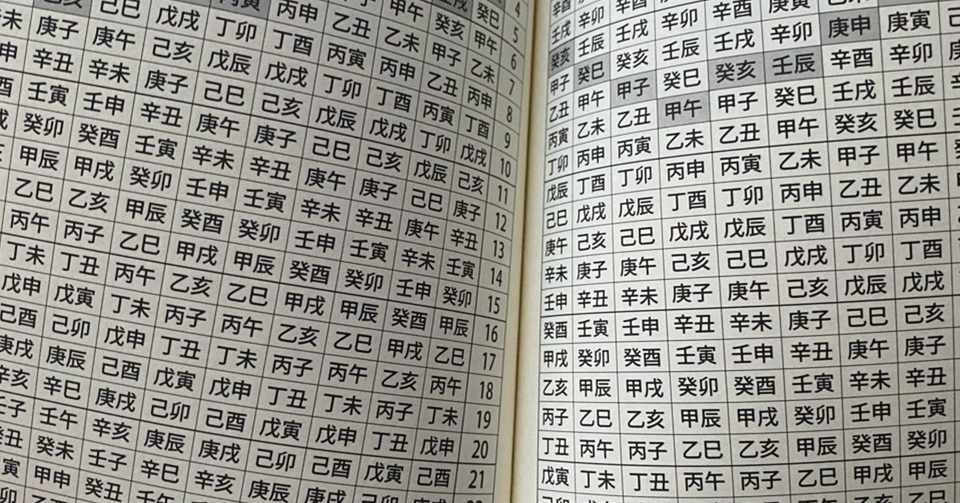 癸巳 4
甲午 癸亥 甲午 5
丙寅 丙申 乙丑 乙未 甲子 乙未 6
己巳 戊戌 丁卯 丁酉 丙寅 丙申 乙丑 丙申 7
庚子 庚午 己亥 戊辰 戊戌 丁卯 丁酉 丙寅 丁酉 8
辛丑 辛未 庚子 己巳 己亥 戊辰 戊戌 丁卯 戊戌 9
壬寅 壬申 辛丑 庚午 庚子 己巳 己亥 戊辰 己亥 10
癸卯 癸酉 壬寅 辛未 辛丑 庚午 庚子 己巳 庚子 11
甲辰 甲戌 癸卯 壬申 壬寅 辛未 辛丑 庚午 辛丑 12
乙巳 乙亥 甲辰 癸酉 癸卯 壬申 壬寅 辛未 壬寅 13
丙午 丙子 乙巳 甲戌 甲辰 癸酉 癸卯 壬申 癸卯 14
丁未 丁丑 丙午 乙亥 乙巳 甲戌 甲辰 癸酉 甲辰 15
戊申 戊寅 丁未 丙子 丙午 乙亥 乙巳 甲戌 乙巳 16
己酉 己卯 戊申 丁丑 丁未 丙子 丙午 乙亥 丙午 17
庚戌 庚辰 己酉 戊寅 戊申 丁丑 丁未 丙子 丁未 18
辛亥 辛巳 庚戌 己卯 己酉 戊寅 戊申 丁丑 戊申 19
壬子 壬午 辛亥 庚辰 庚戌 己卯 己酉 戊寅 己酉 20
癸丑 癸未 壬子 辛巳 辛亥 庚辰 庚戌 己卯 21
甲申 癸丑 壬午
壬戌 辛卯 辛酉
癸亥 壬辰 壬戌 辛卯 辛酉 庚寅
甲子 癸巳 癸亥 壬辰 壬戌 辛卯 庚申 庚寅
乙丑 甲午 甲子 癸巳 癸亥 壬辰 辛酉 辛卯
丙寅 乙未 乙丑 甲午 甲子 癸巳 壬戌 壬辰
丁卯 丙申 丙寅 乙未 乙丑 甲午 癸亥 癸巳
戊辰 丁酉 丁卯 丙申 丙寅 乙未 甲子 甲午
己巳 戊戌 戊辰 丁酉 丁卯 丙申 乙丑 乙未
庚午 己亥 己巳 戊戌 戊辰 丁酉 丙寅 丙申
辛未 庚子 庚午 己亥 己巳 戊戌 丁卯 丁酉
壬申 辛丑 辛未 庚子 庚午 己亥 戊辰 戊戌
癸酉 壬寅 壬申 辛丑 辛未 庚子 己巳 己亥
甲戌 癸卯 癸酉 壬寅 壬申 辛丑 庚午 庚子
乙亥 甲辰 甲戌 癸卯 癸酉 壬寅 辛未 辛丑
丙子 乙巳 乙亥 甲辰 甲戌 癸卯 壬申 壬寅
丁丑 丙午 丙子 乙巳 乙亥 甲辰 癸酉 癸卯
戊寅 丁未 丁丑 丙午 丙子 乙巳 甲戌 甲辰